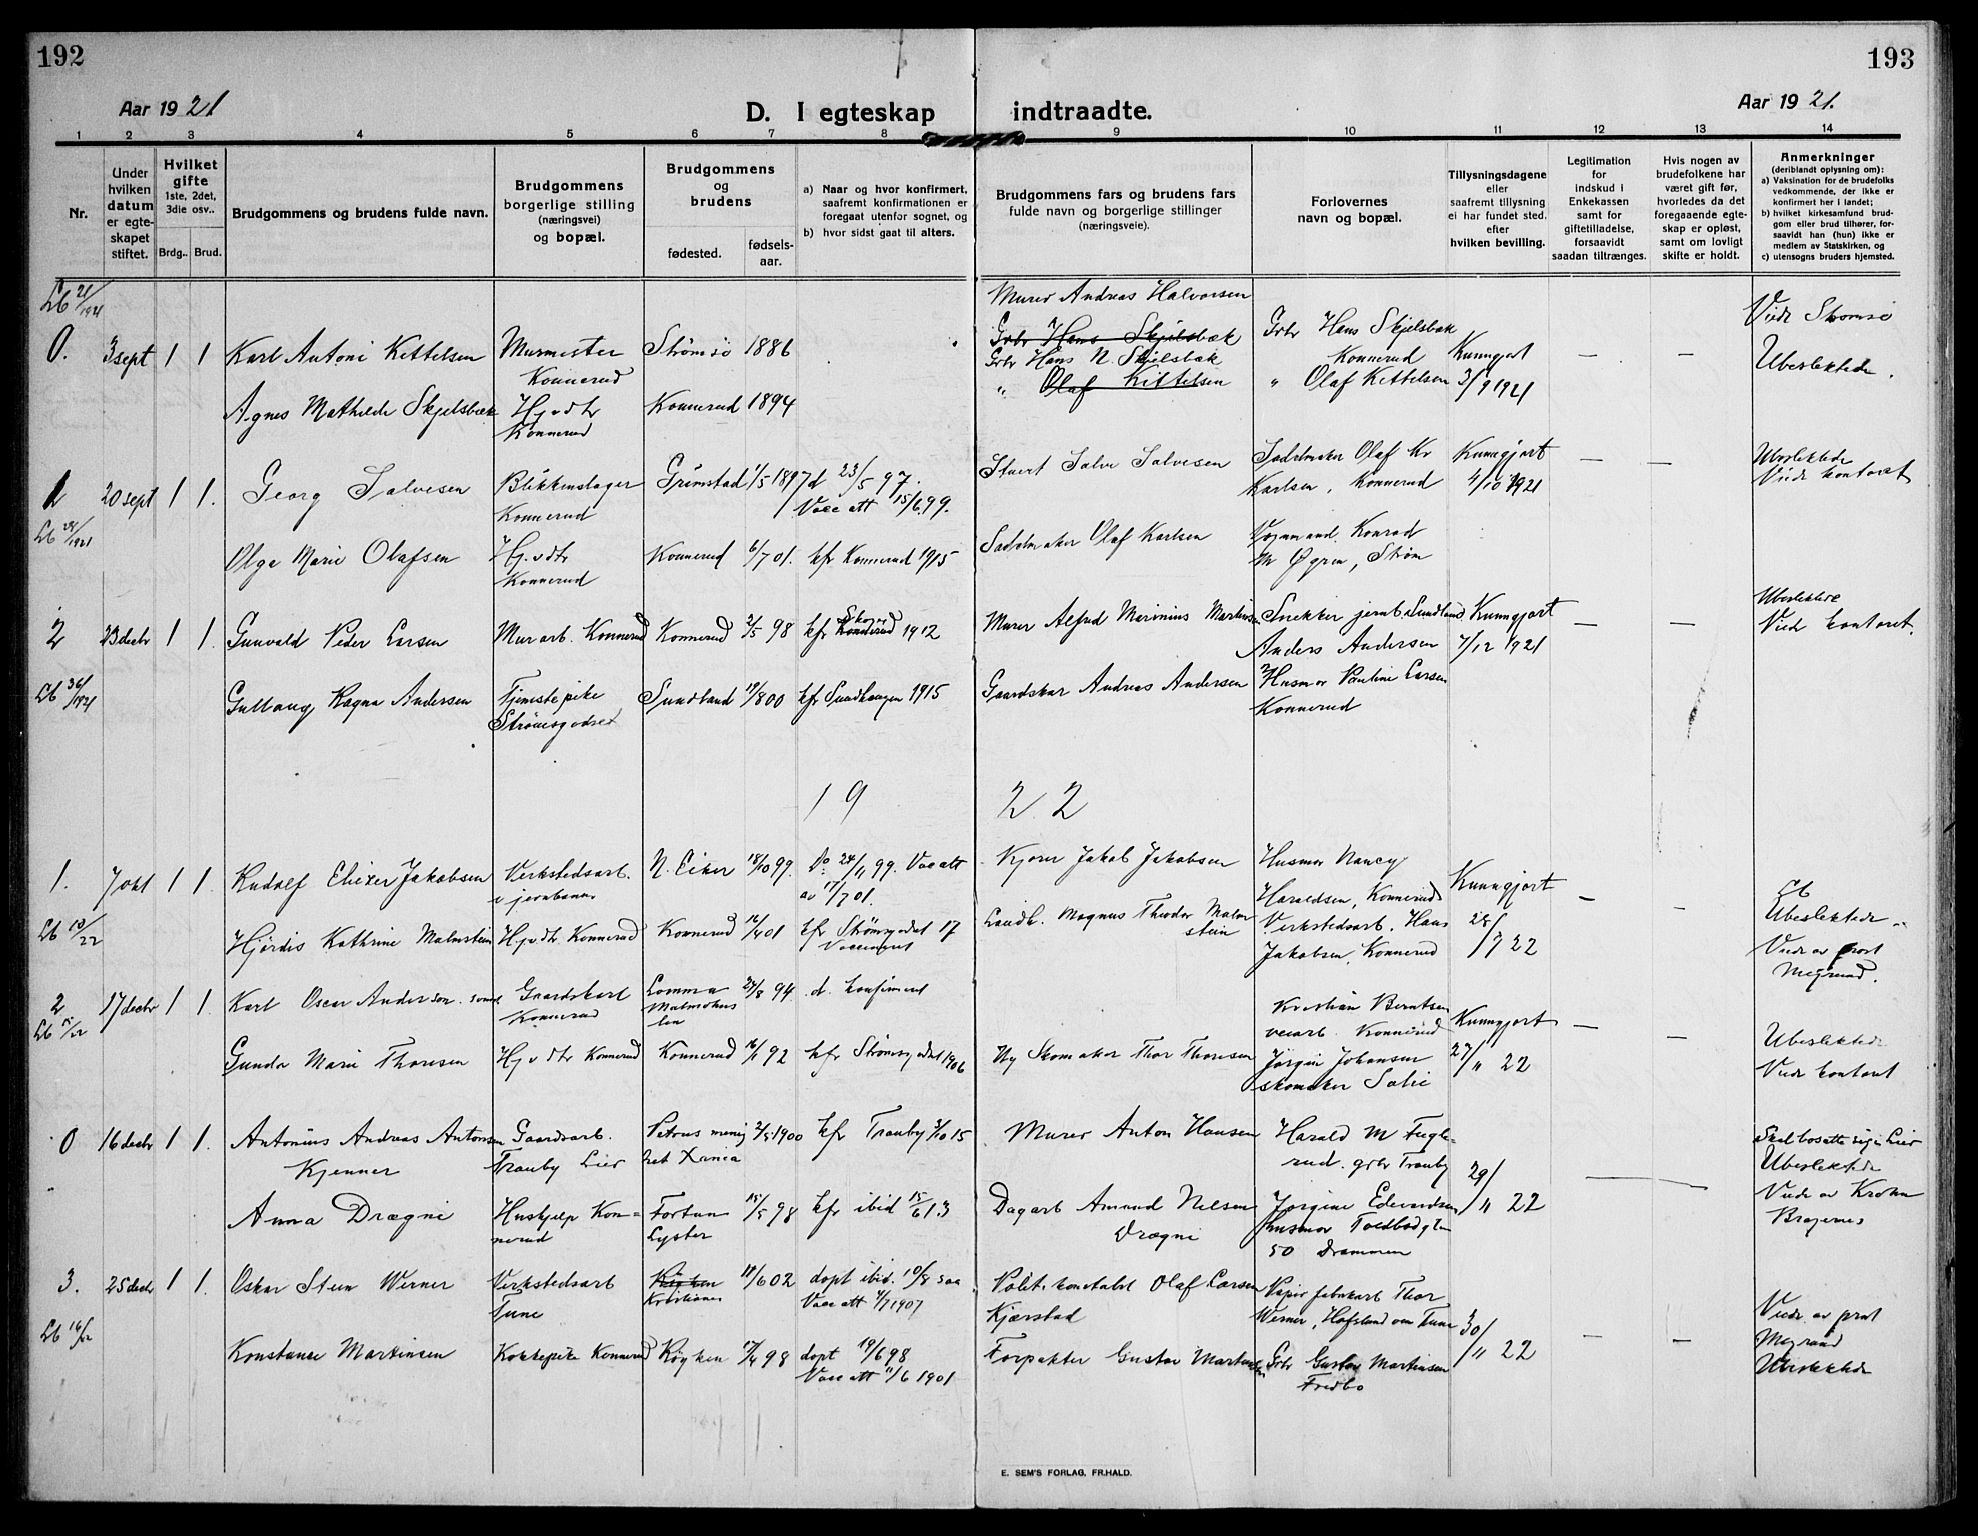 192
193
Aar 1921
D. I egteskap indtraadte.
Aar 1921.
1 2 3 4 5 6 7 8 9 10 11 12 13 14
Nr.
Under hvilken datum er egteskapet stiftet.
Hvilket gifte 1ste, 2det, 3die osv..
Brdg.. Brud.
Brudgommens og brudens fulde navn.
Brudgommens borgerlige stilling (næringsvei) og bopæl.
Brudgommens og brudens
fødested.
fødsels-aar.
a) Naar og hvor konfirmert, saafremt konfirmationen er foregaat utenfor sognet, og
b) hvor sidst gaat til alters.
Brudgommens fars og brudens fars fulde navn og borgerlige stillinger (næringsveie).
Forlovernes navn og bopæl.
Tillysningsdagene eller saafremt tillysning ei har fundet sted. efter hvilken bevilling.
Legitimation for indskud i Enkekassen samt for giftetilladelse, forsaavidt saadan tiltrænges.
Hvis nogen av brudefolkene har været gift før, hvorledes da det foregaaende egteskap er opløst, samt om lovligt skifte er holdt.
Anmerkninger (deriblandt oplysning om):
a) Vaksination for de brudefolks vedkommende, der ikke er konfirmert her i landet;
b) hvilket kirkesamfund brudgom eller brud tilhører, forsaavidt han (hun) ikke er medlem av Statskirken, og
c) utensogns bruders hjemsted.
Lb 21/1921
Murer Andreas Halvorsen
Viede Strømsø
0. 3 sept 1 1 Karl Antoni Kittelsen Murmester Strømsø 1886 Grbr Hans Skjelsbæk Grbr Hans Skjelsbæk
Konnerud Grbr Hans N. Skjelsbæk Konnerud Kunngjort — — Ubeslektede.
" Olaf Kittelsen " Olaf Kittelsen 3/9 1921
Agnes Mathilde Skjelsbæk Hj.v.dtr Konnerud 1894
Konnerud
1 20 sept 1 1. Georg Salvesen Blikkenslager Grimstad 1/5 1897 d 23/5 97. Stuert Salve Salvesen Sadelmaker Olaf Kr Kunngjort — — Ubeslektede
Konnerud Vacc att 15/6 99. Karlsen, Konnerud 4/10 1921 Viede kontoret
Olga Marie Olafsen Hj.v.dtr Konnerud 6/7 01. kfr Konnerud 1915 Sadelmaker Olaf Karlsen Vognmand Konrad
Konnerud M Øgren, Strøm
2 23 decbr 1 1. Gunvald Peder Larsen Murarb. Konnerud Konnerud 2/5 98 kfr Konnerud Skoger 1912 Murer Alfred Marinius Martinsen Snekker jernb. Sundland Kunngjort — — Ubeslektede
Anders Andersen 7/12 1921 Viede kontoret.
Lb 36/1921 Gullaug Ragna Andersen Tjenestepike Sundland 19/8 00 kfr Sundhaugen 1915 Gaardskar Andreas Andersen Husmor Pauline Larsen
Strømsgodset Konnerud
19 22
1. 7 okt 1 1. Rudolf Eliezer Jakobsen Verkstedsarb. N. Eiker 18/10 99. Do 24/11 99. Vacc att Kjører Jakob Jakobsen Husmor Nancy
i jernbanen av 17/7 01. Haraldsen, Konnerud Kunngjort — — Lb
Lb 10/22 Hjørdis Kathrine Malmstein Hj.v.dtr. Konnerud Konnerud 16/4 01 kfr Strømsgodset 17 Landh. Magnus Theodor Malmstein Verkstedsarb. Hans 28/9 22 Ubeslektede
Vaccinert Jakobsen, Konnerud Viede av prost
Megrund.
2 17 decbr 1 1. Karl Oscar Anderson Gaardskarl Lomma 24/8 94 d. konfirmert Kristian Berntsen
Konnerud Malmøhus len veiarb. Konnerud Kunngjort — — Ubeslektede
Gunda Marie Thoresen Hj.v.dtr Konnerud Konnerud 16/1 92 kfr Strømsgodset 1906 Skomaker Thor Thoresen Jørgin Johansen 27/11 22 Viede kontoret
skomaker Solie
0 16 decbr 1 1. Antonius Andreas Antonsen Gaardsarb. 2/5 1900 kfr Tranby 1/10 15 Murer Anton Hansen Harald M Fugle- Skal bosætte sig i Lier
Kjenner Tranby Lier rud. grbr Tranby Ubeslektede
Anna Drægni Hushjelp Kon- Fortun 15/5 98 kfr ibid 15/6 13 Dagarb Amund Nilsen Jørgine Edvardsen 29/11 22 Viede av Krohn
nerud Lyster Drægni husmor Toldbodgtn Bragernes
50 Drammen
3. 25 decbr 1 1. Oskar Stein Werner Verkstedsarb Røyken 18/6 02 døpt ibid. 10/8 s aa Polit. konstabel Olaf Larsen Papir fabrikarb Thor
Tune Kristiania Vacc att 4/7 1907 Kjærstad Werner, Hafslund om Tune Viede av prost
Konstanse Martinsen Kokkepike Konnerud Røyken 17/4 98 døpt 19/6 98 Forpakter Gustav Martinsen Grbr Gustav Martinsen 30/11 22 — — Megrund
Vacc att 11/6 1901 Fredbo Ubeslektede
E. SEM'S FORLAG, FR.HALD.